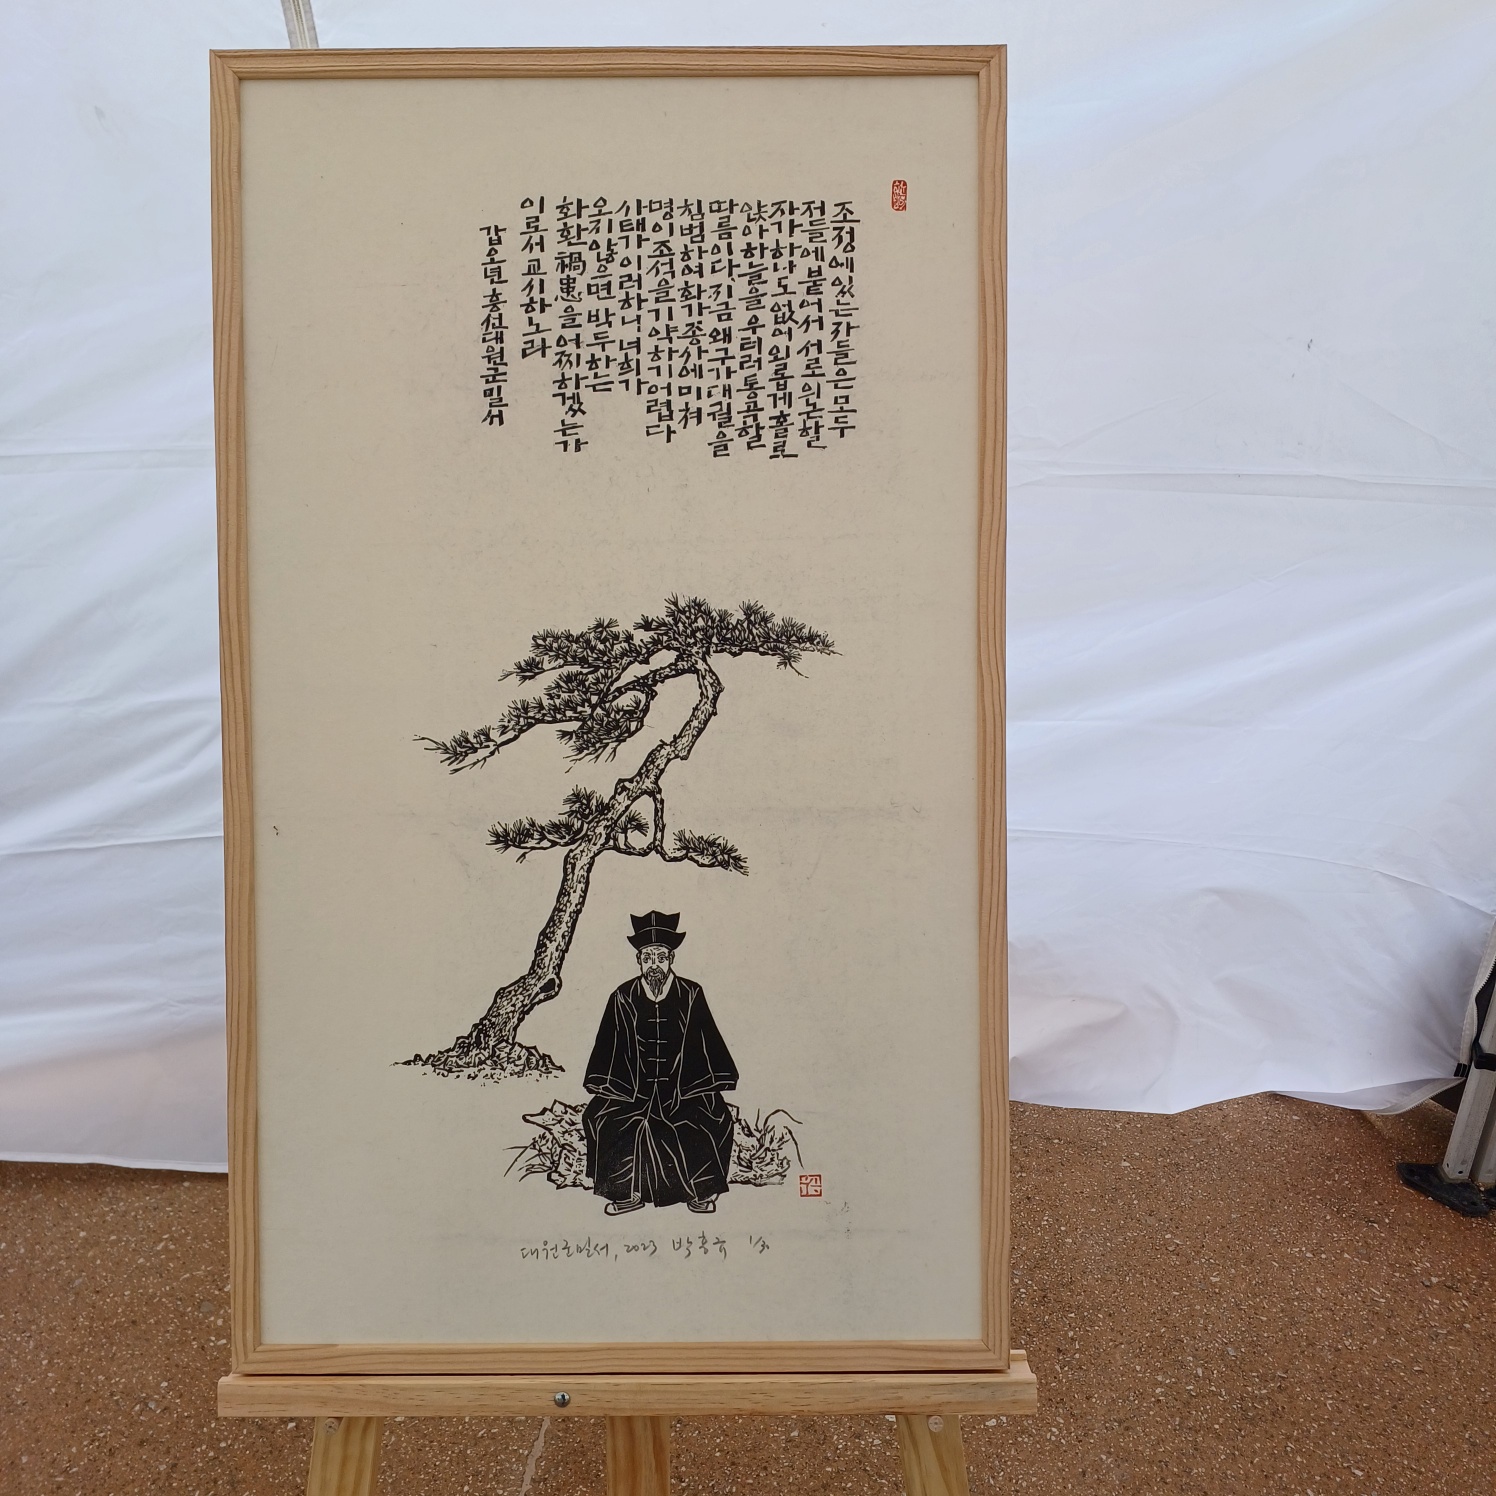 조정에 있는 자들은 모두
저들에 붙어서 서로 의논할
자가 하나도 없어 외롭게 홀로
앉아 하늘을 우러러 통곡할
따름이다. 지금 왜구가 대궐을
침범하여 화가 종사에 미쳐
명이 조석을 기약하기 어렵다
사태가 이러하니 너희가
오지 않으면 박두하는
화환禍患을 어찌하겠는가
이로서 교시하노라
갑오년 흥선대원군밀서
대원군밀서, 2023 박홍규 1/30